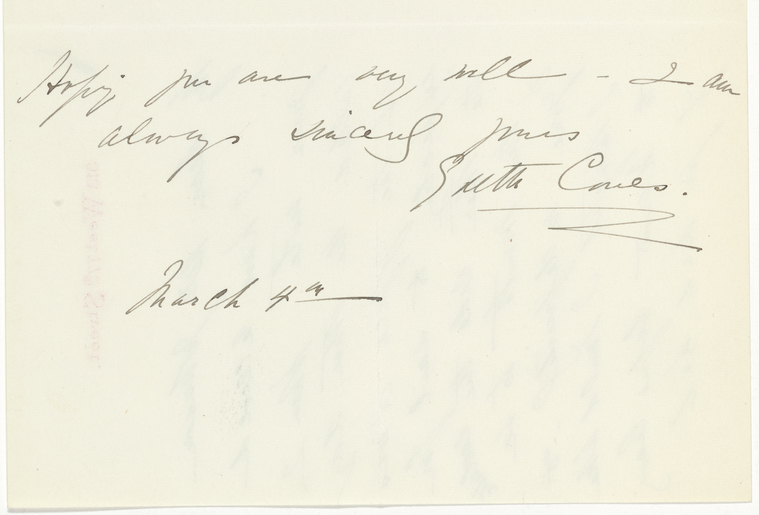 Hoping you are very well – I am
always sincerely yours
Edith Coues.
March 4th